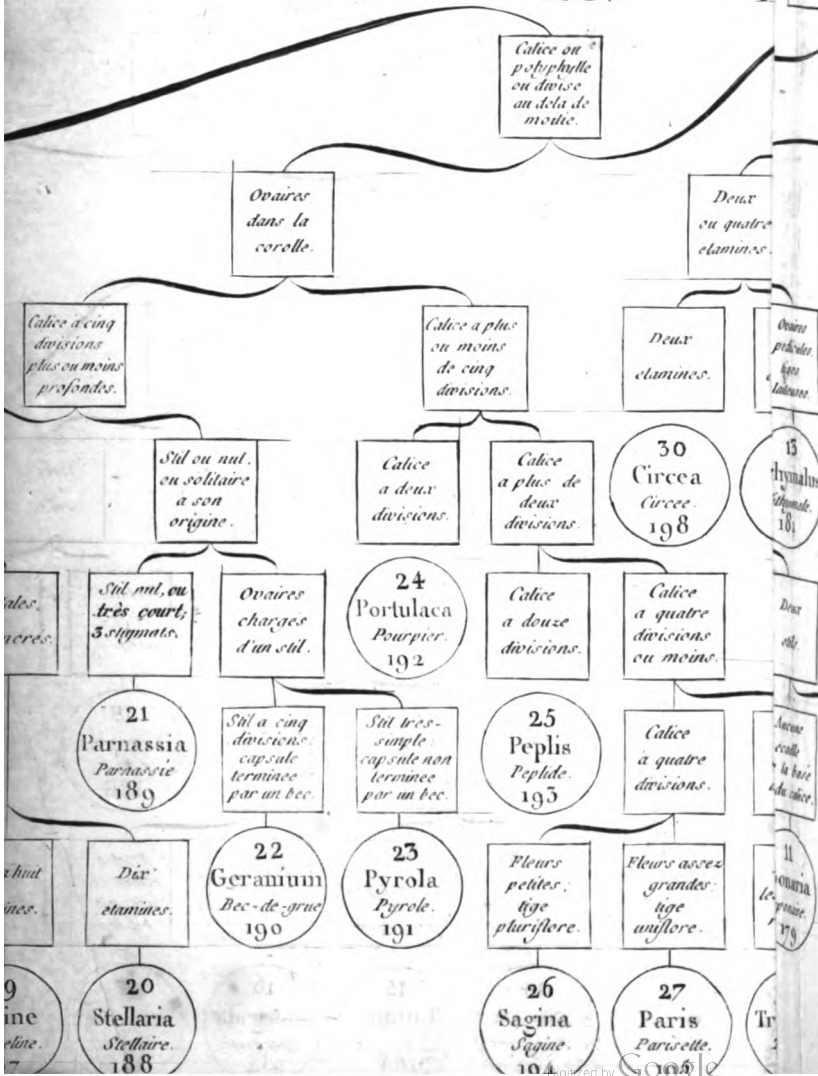 Calice ou
polyphylle
ou divise
au dela de
moitie.
Ovaires
dans la
corolle.
Deux
ou quatre
etamines.
Calice a cinq
divisions
plus ou moins
profondes.
Calice a plus
ou moins
de cinq
divisions.
Deux
etamines.
Ovaires
pedicules,
Stil ou nul,
ou solitaire
a son
origine.
Calice
a deux
divisions.
Calice
a plus de
deux
divisions.
30
Circea
Circee.
198
13
181
ales,
Stil nul, ou
très court;
3 stygmats.
Ovaires
charges
d'un stil.
24
Portulaca
Pourpier.
192
Calice
a douze
divisions.
Calice
a quatre
divisions
ou moins.
Deux
21
Parnassia
Parnassie
189
Stil a cinq
divisions:
capsule
terminee
par un bec.
Stil tres-
simple:
capsule non
terminee
par un bec.
25
Peplis
Peplide.
193
Calice
à quatre
divisions.
Aucune
la base
du calice.
huit
ines.
Dix
etamines.
22
Geranium
Bec-de-grue
190
23
Pyrola
Pyrole.
191
Fleurs
petites;
tige
pluriflore.
Fleurs assez
grandes:
tige
uniflore.
11
onaria
179
9
ine
eline.
7
20
Stellaria
Stellaire.
188
26
Sagina
Sagine.
194
27
Paris
Parisette.
195
Tr
Digitized by Google